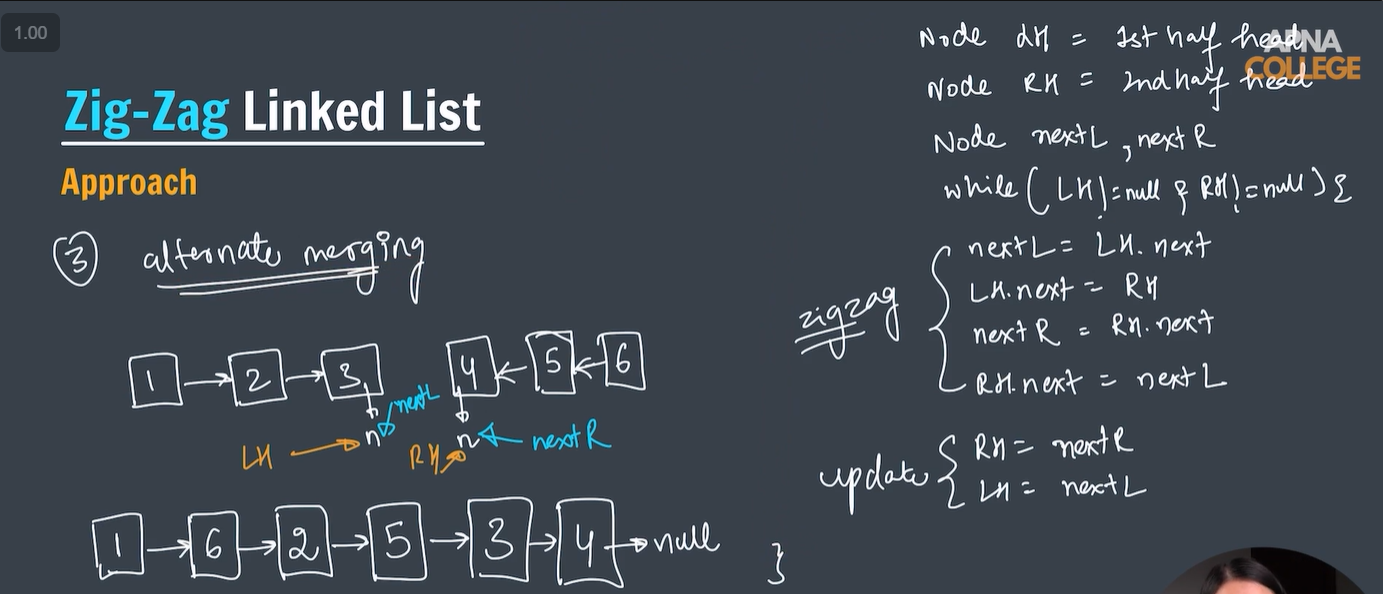 1.00
APNA
COLLEGE
Zig-Zag Linked List
Approach
③ alternate merging
1 → 2 → 3 4 ← 5 ← 6
nextL
n n nextR
LH → RH
1 → 6 → 2 → 5 → 3 → 4 → null
Node LH = 1st half head
Node RH = 2nd half head
Node nextL, nextR
while (LH != null & RH != null) {
zigzag
nextL = LH.next
LH.next = RH
nextR = RH.next
RH.next = nextL
update
RH = nextR
LH = nextL
}